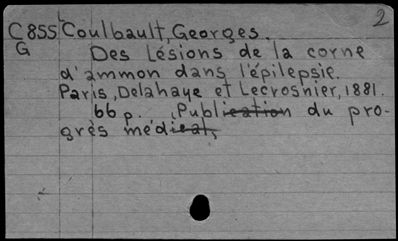 2
C855 Coulbault, Georges.
G Des Lésions de la corne
d'ammon dans l'épilepsie.
Paris, Delahaye et Lecrosnier, 1881.
66 p. (Publication du pro-
grès médical,